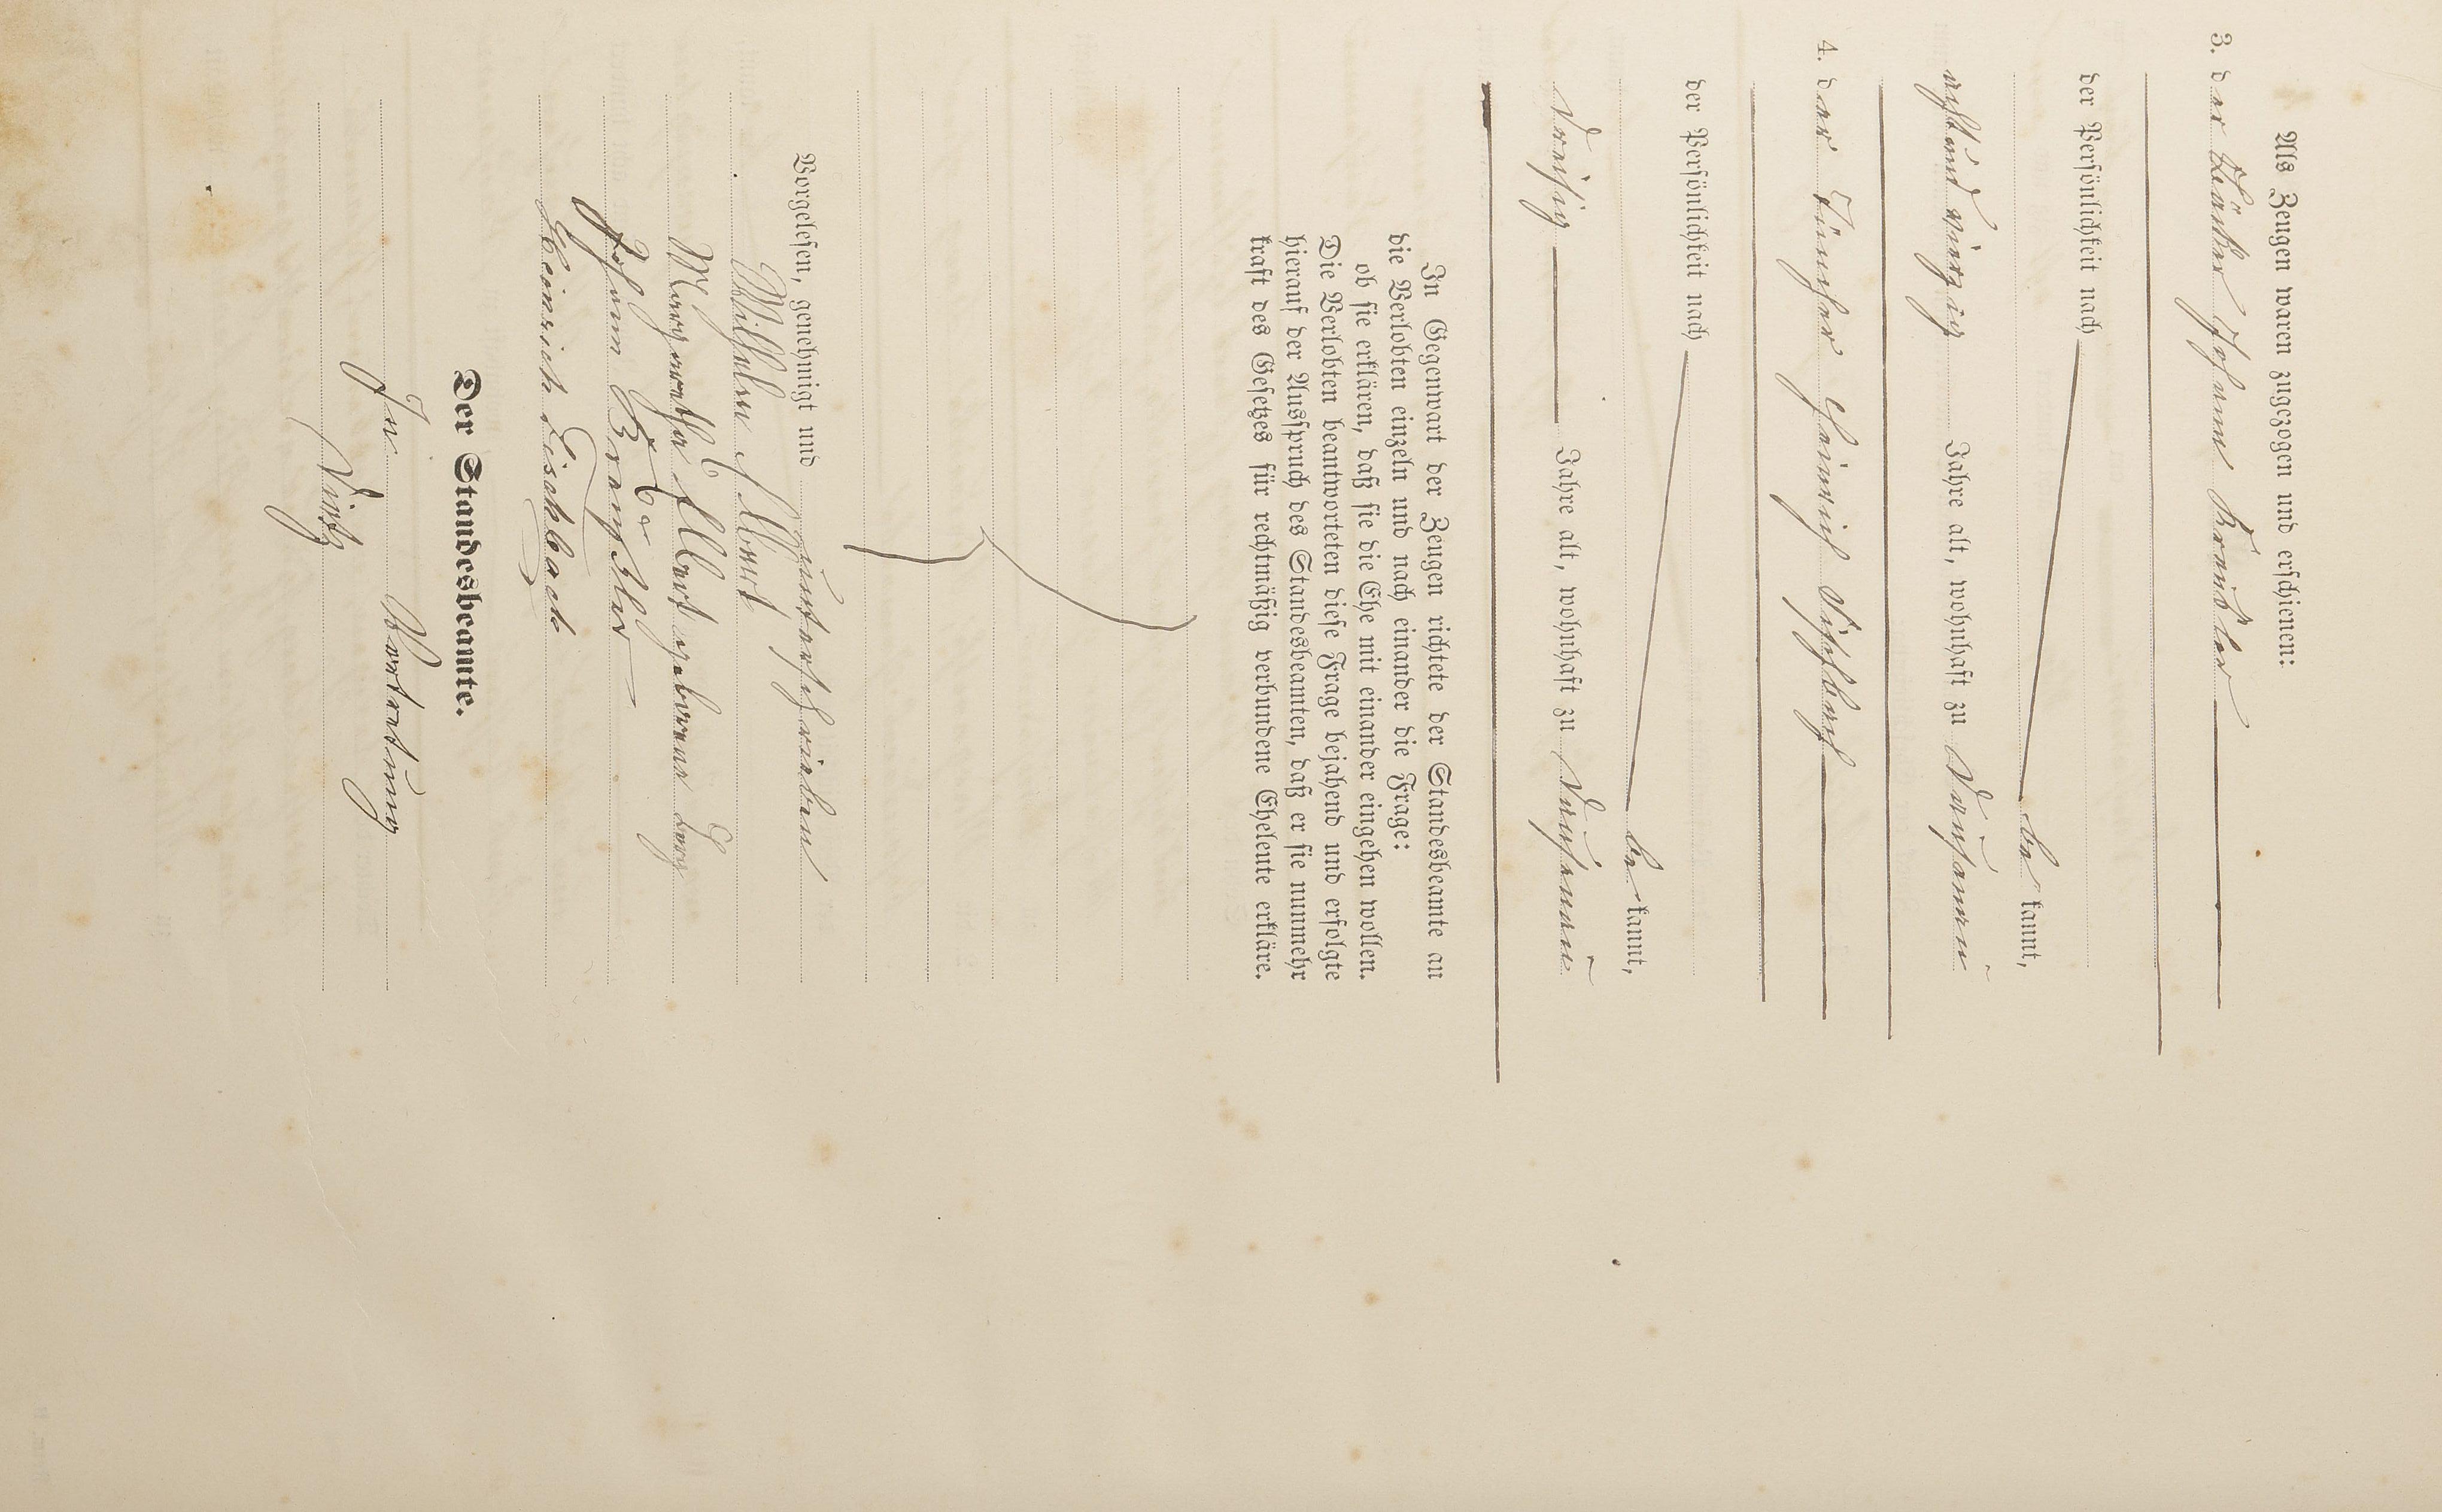 Als Zeugen waren zugezogen und erschienen:
3. der Bäcker Johann Kreußler
der Persönlichkeit nach
be kannt,
achtundvierzig Jahre alt, wohnhaft zu Dausenau
4. der Tüncher Heinrich Dischbach
der Persönlichkeit nach
be kannt,
dreißig Jahre alt, wohnhaft zu Dausenau
In Gegenwart der Zeugen richtete der Standesbeamte an
die Verlobten einzeln und nach einander die Frage:
ob sie erklären, daß sie die Ehe mit einander eingehen wollen.
Die Verlobten beantworteten diese Frage bejahend und erfolgte
hierauf der Ausspruch des Standesbeamten, daß er sie nunmehr
kraft des Gesetzes für rechtmäßig verbundene Eheleute erkläre.
Vorgelesen, genehmigt und unterschrieben
Wilhelm Elbert
Margaretha Elbert geborene
Johann
Heinrich Dischbach
Der Standesbeamte.
In Vertretung